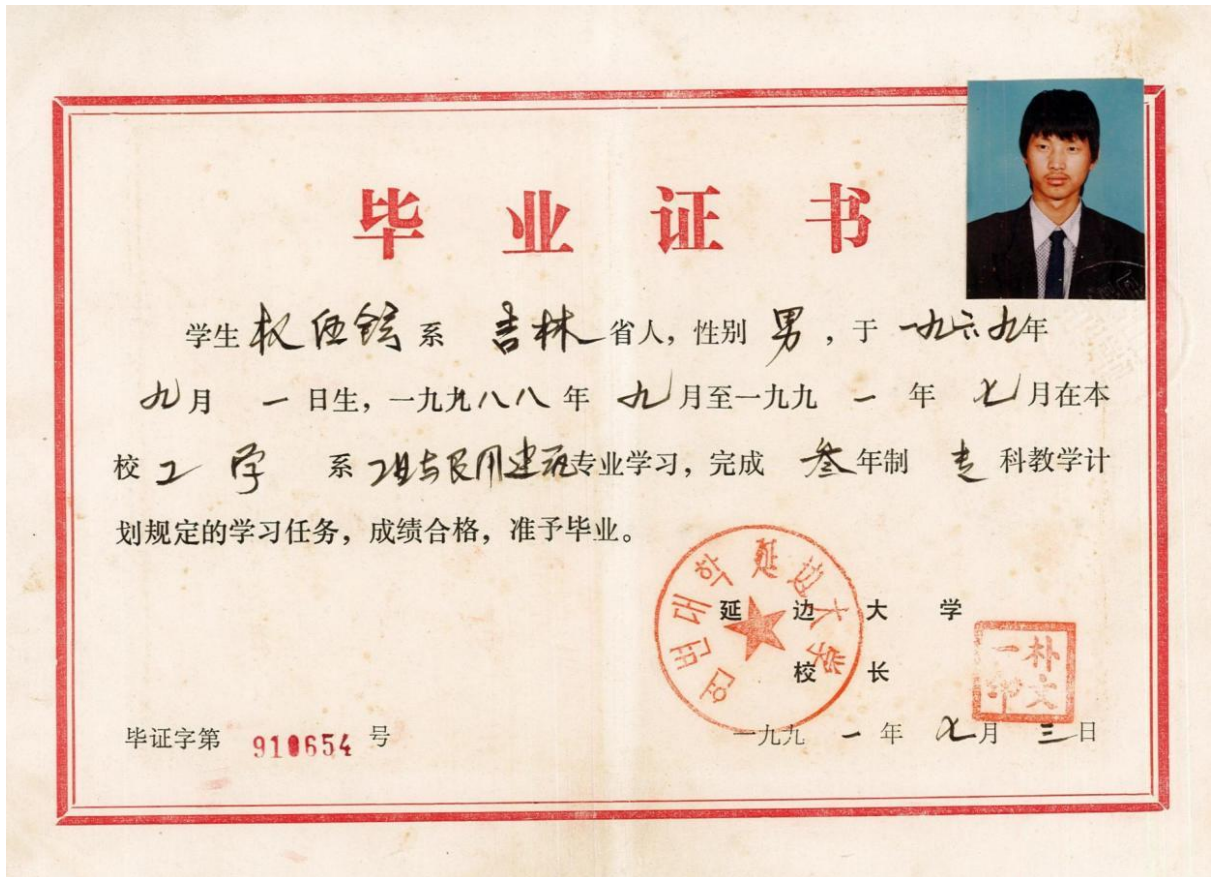 毕业证书
学生 权 系 吉林 省人，性别 男，于 一九六九年
九月 一 日生，一九九八八 年 九月至一九九 一 年 七月在本
校 工 学 系 工业与民用建筑专业学习，完成 叁年制 专 科教学计
划规定的学习任务，成绩合格，准予毕业。
연변대학 延边大学
延边大学
校长
朴文一印
一九九 一 年 七月 三日
毕证字第 910654 号